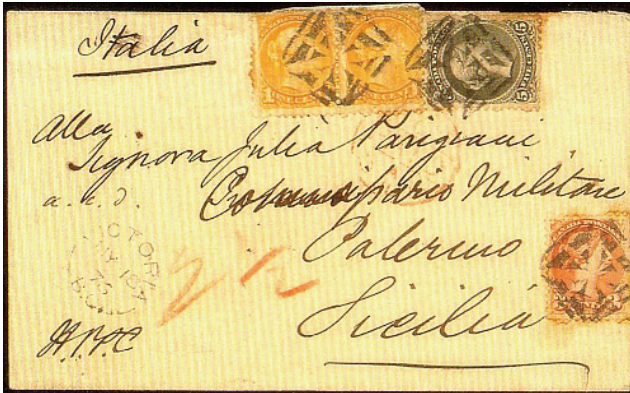 Italia
Alla
Signora Julia Parigiani
a. c. d. Commissario Militare
Palermo
Sicilia
VICTORIA
MY 18
75
B.C.
2 1/2
1
5
3